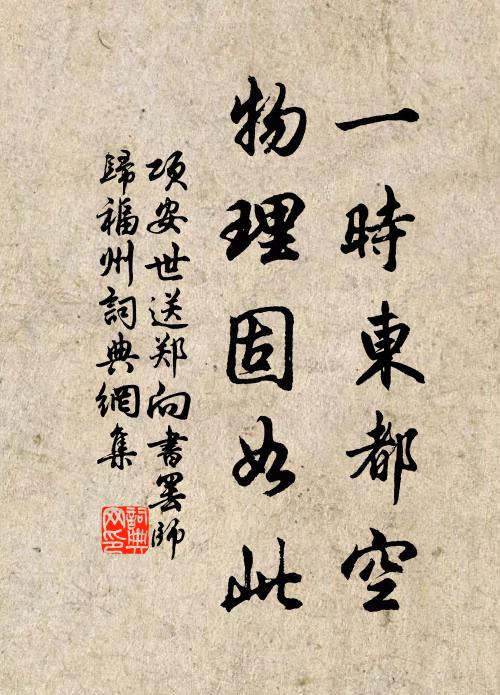 一時東都空
物理固如此
项安世送郑向書罢師
歸福州詞典網集
詞典网印